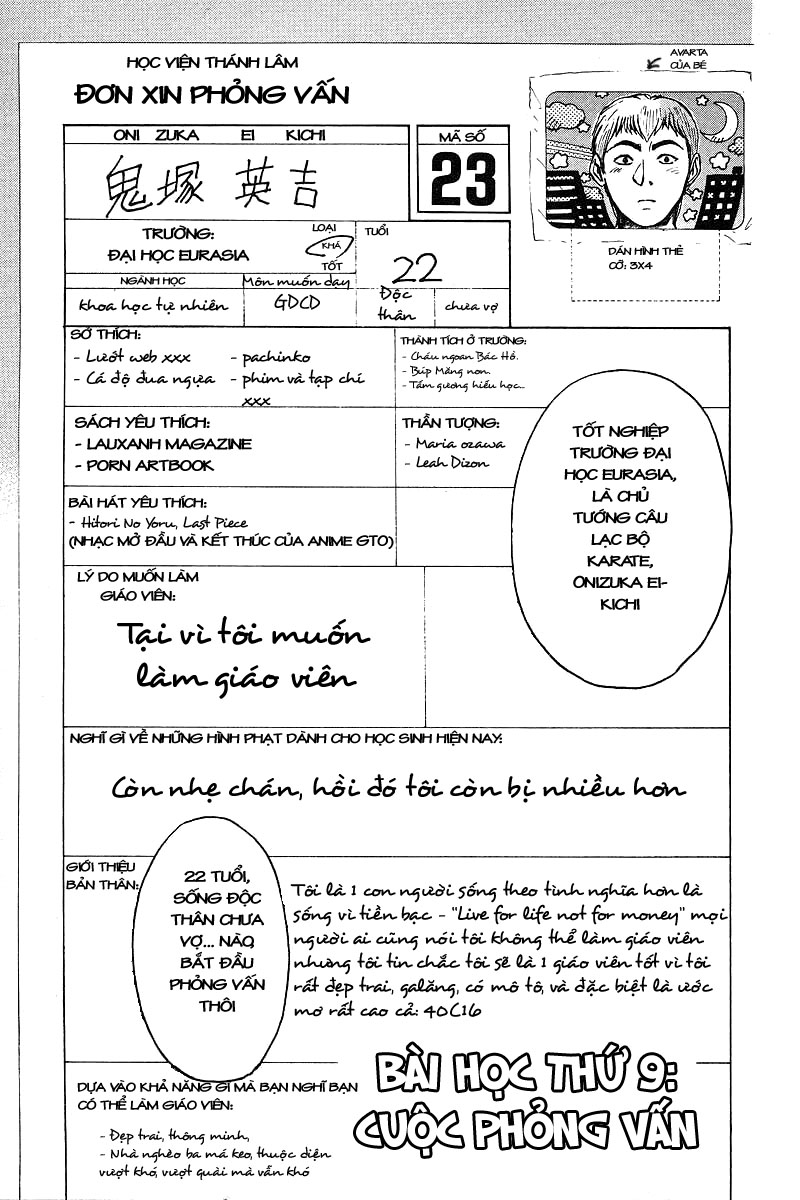 HỌC VIỆN THÁNH LÂM
ĐƠN XIN PHỎNG VẤN
AVARTA
CỦA BÉ
ONI ZUKA EI KICHI
鬼塚 英吉
MÃ SỐ
23
DÁN HÌNH THẺ
CỠ: 3X4
TRƯỜNG:
ĐẠI HỌC EURASIA
LOẠI
KHÁ
TỐT
TUỔI
22
NGÀNH HỌC
khoa học tự nhiên
Môn muốn dạy
GDCD
Độc
thân
chưa vợ
SỞ THÍCH:
- Lướt web xxx - pachinko
- Cá độ đua ngựa - phim và tạp chí
xxx
THÀNH TÍCH Ở TRƯỜNG:
- Cháu ngoan Bác Hồ.
- Búp Măng non.
- Tấm gương hiếu học...
SÁCH YÊU THÍCH:
- LAUXANH MAGAZINE
- PORN ARTBOOK
THẦN TƯỢNG:
- Maria ozawa
- Leah Dizon
BÀI HÁT YÊU THÍCH:
- Hitori No Yoru, Last Piece
(NHẠC MỞ ĐẦU VÀ KẾT THÚC CỦA ANIME GTO)
TỐT NGHIỆP
TRƯỜNG ĐẠI
HỌC EURASIA,
LÀ CHỦ
TƯỚNG CÂU
LẠC BỘ
KARATE,
ONIZUKA EI-
KICHI
LÝ DO MUỐN LÀM
GIÁO VIÊN:
Tại vì tôi muốn
làm giáo viên
NGHĨ GÌ VỀ NHỮNG HÌNH PHẠT DÀNH CHO HỌC SINH HIỆN NAY:
Còn nhẹ chán, hồi đó tôi còn bị nhiều hơn
GIỚI THIỆU
BẢN THÂN:
22 TUỔI,
SỐNG ĐỘC
THÂN CHƯA
VỢ... NÀO,
BẮT ĐẦU
PHỎNG VẤN
THÔI
Tôi là 1 con người sống theo tình nghĩa hơn là
sống vì tiền bạc - "Live for life not for money" mọi
người ai cũng nói tôi không thể làm giáo viên
nhưng tôi tin chắc tôi sẽ là 1 giáo viên tốt vì tôi
rất đẹp trai, galăng, có mô tô, và đặc biệt là ước
mơ rất cao cả: 40C16
DỰA VÀO KHẢ NĂNG GÌ MÀ BẠN NGHĨ BẠN
CÓ THỂ LÀM GIÁO VIÊN:
- Đẹp trai, thông minh,
- Nhà nghèo ba má kéo, thuộc diện
vượt khó, vượt quài mà vẫn khó
BÀI HỌC THỨ 9:
CUỘC PHỎNG VẤN